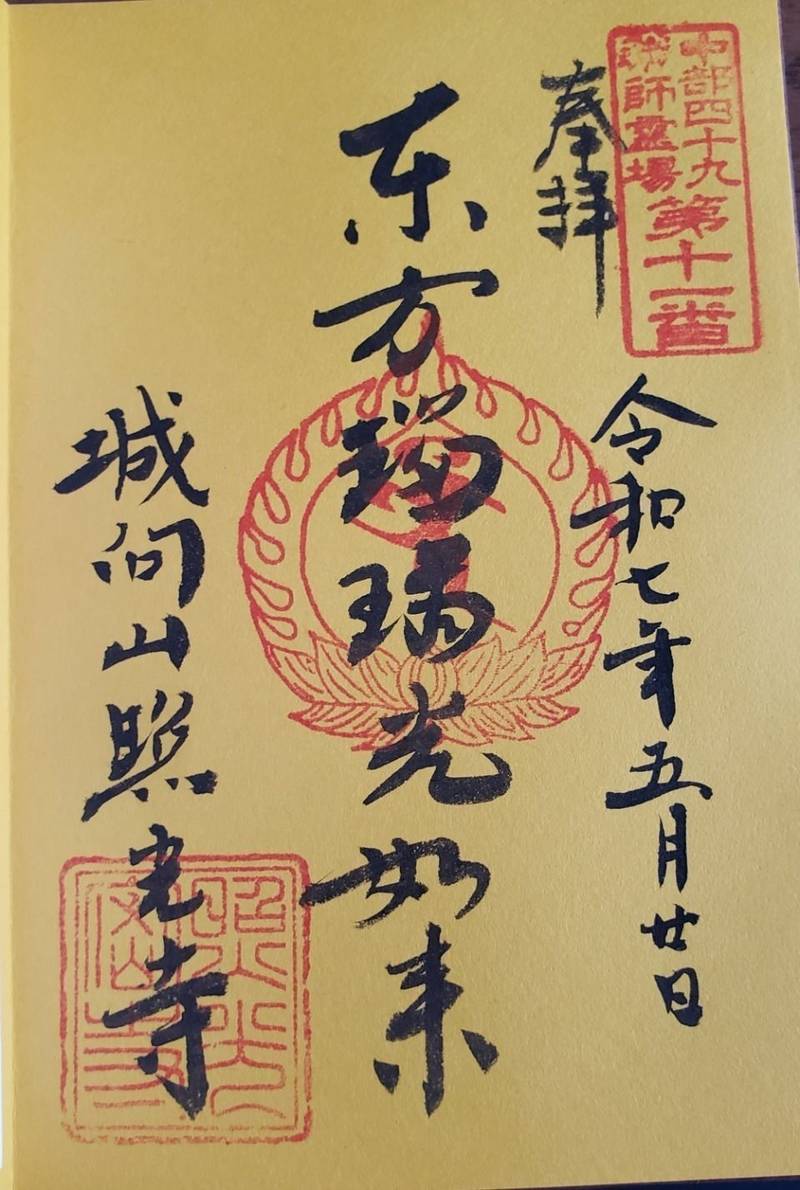 中部四十九
薬師霊場
第十一番
奉拝
令和七年五月廿日
东方瑠璃光如来
城向山照光寺